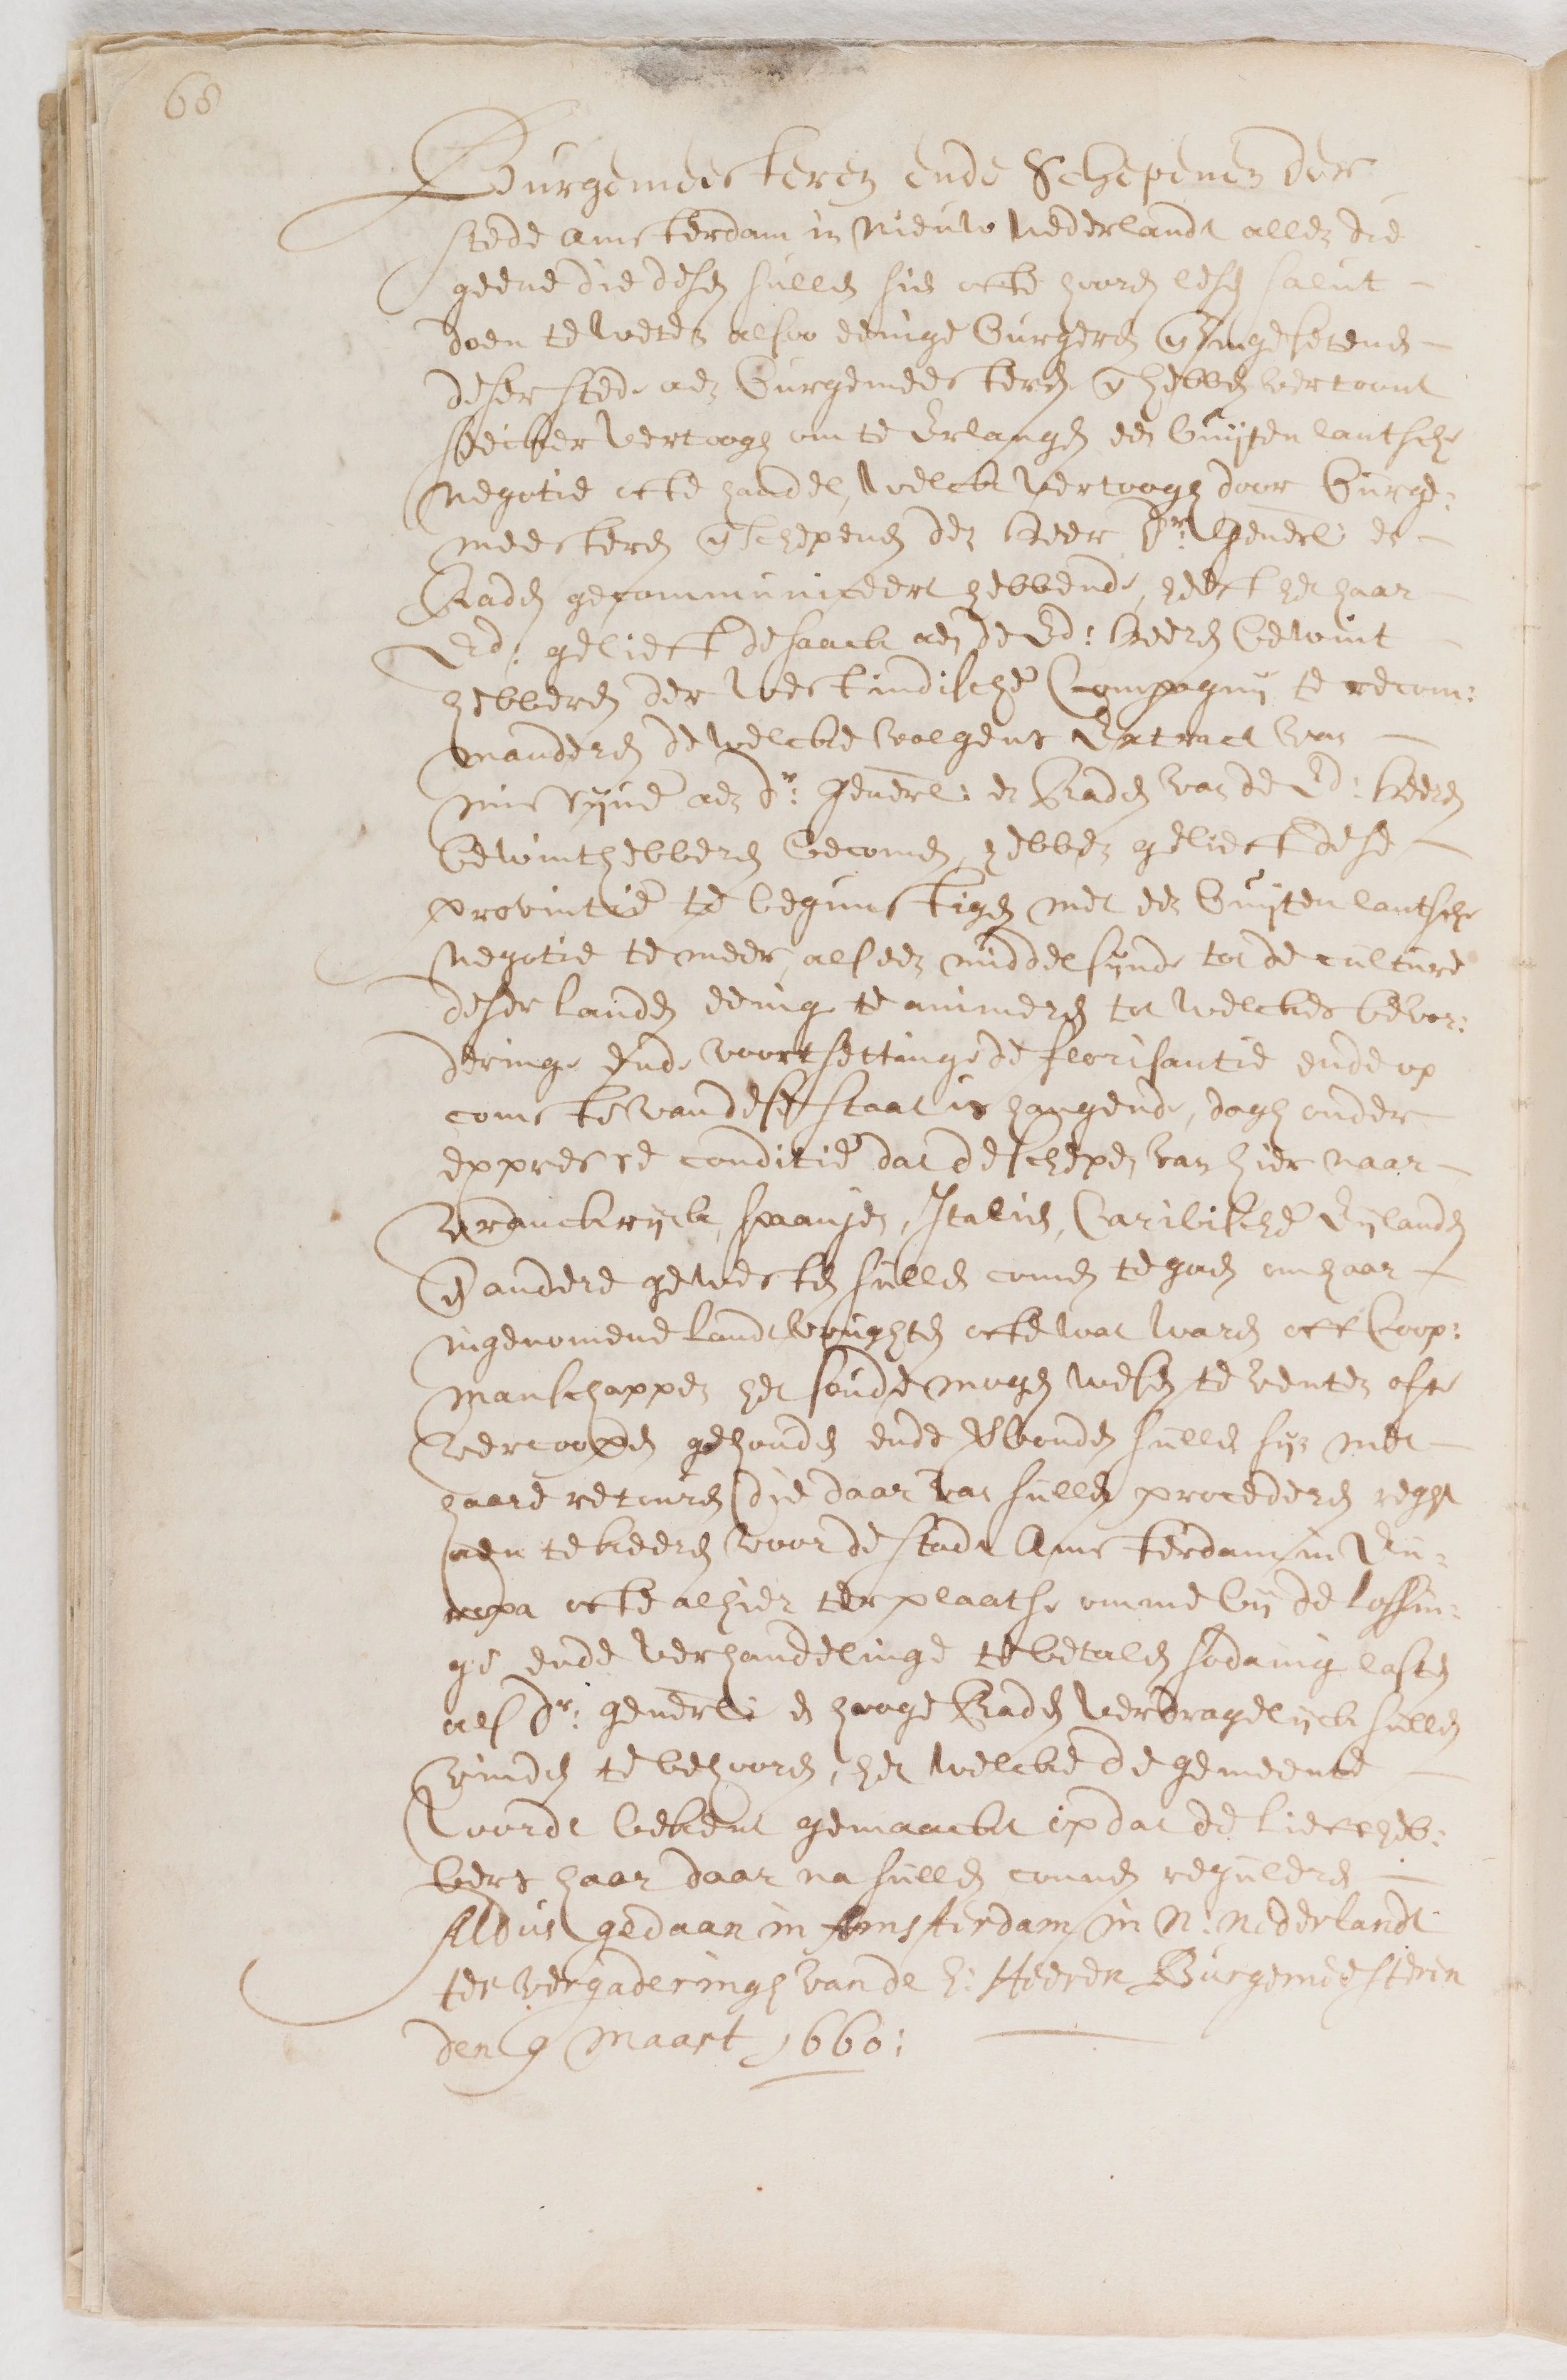 66
Burgemeesteren ende Schepenen der
stede Amsterdam in Nieuw Nederlandt allen die
geene die desen sullen sien ofte hooren lesen salut
doen te weten alsoo eenige Burgeren en Ingesetenen
deser stede aen Burgemeesteren en hebben vertoont
seecker vertoogh om te Erlangen een Buijtenlantsche
negotie ofte handel, welck vertoogh door Burge:
meesteren en schepenen den heer Dr: Generl: en
Raden gecommuniceert hebbende, heeft het haar
Ed: gelieft de saack aen de Ed: heeren bewint
hebberen der westindische Compagnij te recom:
manderen de welcke volgens Extract van
missijve aen dr: Generl: en Raden van de Ed: heeren
bewinthebberen becomen, hebben gelieft dese
provintie te begunstigen met een Buijtenlantsche
negotie te meer, als een middel sijnde tot de culture
deser landen eenig te animeren tot welckes bevor:
deringe Ende voortsettinge de florisantie ende op
comste van desen staat is hangende, dogh onder
expresse conditie dat de schepen van hier naar
vranckrijck, spanjen, Italien, Caribische Eijlanden
en andere gewesten sullen comen te gaen om haar
ingenomene landtvrughten ofte wat waren ofte Coop:
manschappen het soude mogen wesen te venten ofte
vercoopen gehouden ende verbonden sullen sijn met
haare retouren die daar van sullen procederen reght
aen te keeren voor de stadt Amsterdam in Eu:
ropa ofte alhier ter plaatse omme bij de lossin:
ge ende verhandelinge te betalen sodanig lasten
als dr: generl: en hooge Raden verdragelijck sullen
vinden te behooren, het welcke de gemeente
wordt bekent gemaackt op dat de liefheb:
bers haar daar na sullen connen reguleren
Aldus gedaan in Amsterdam in N: Nederlandt
ter vergaderingh van de h: Heeren Burgemeesteren
den 9 Maart 1660: